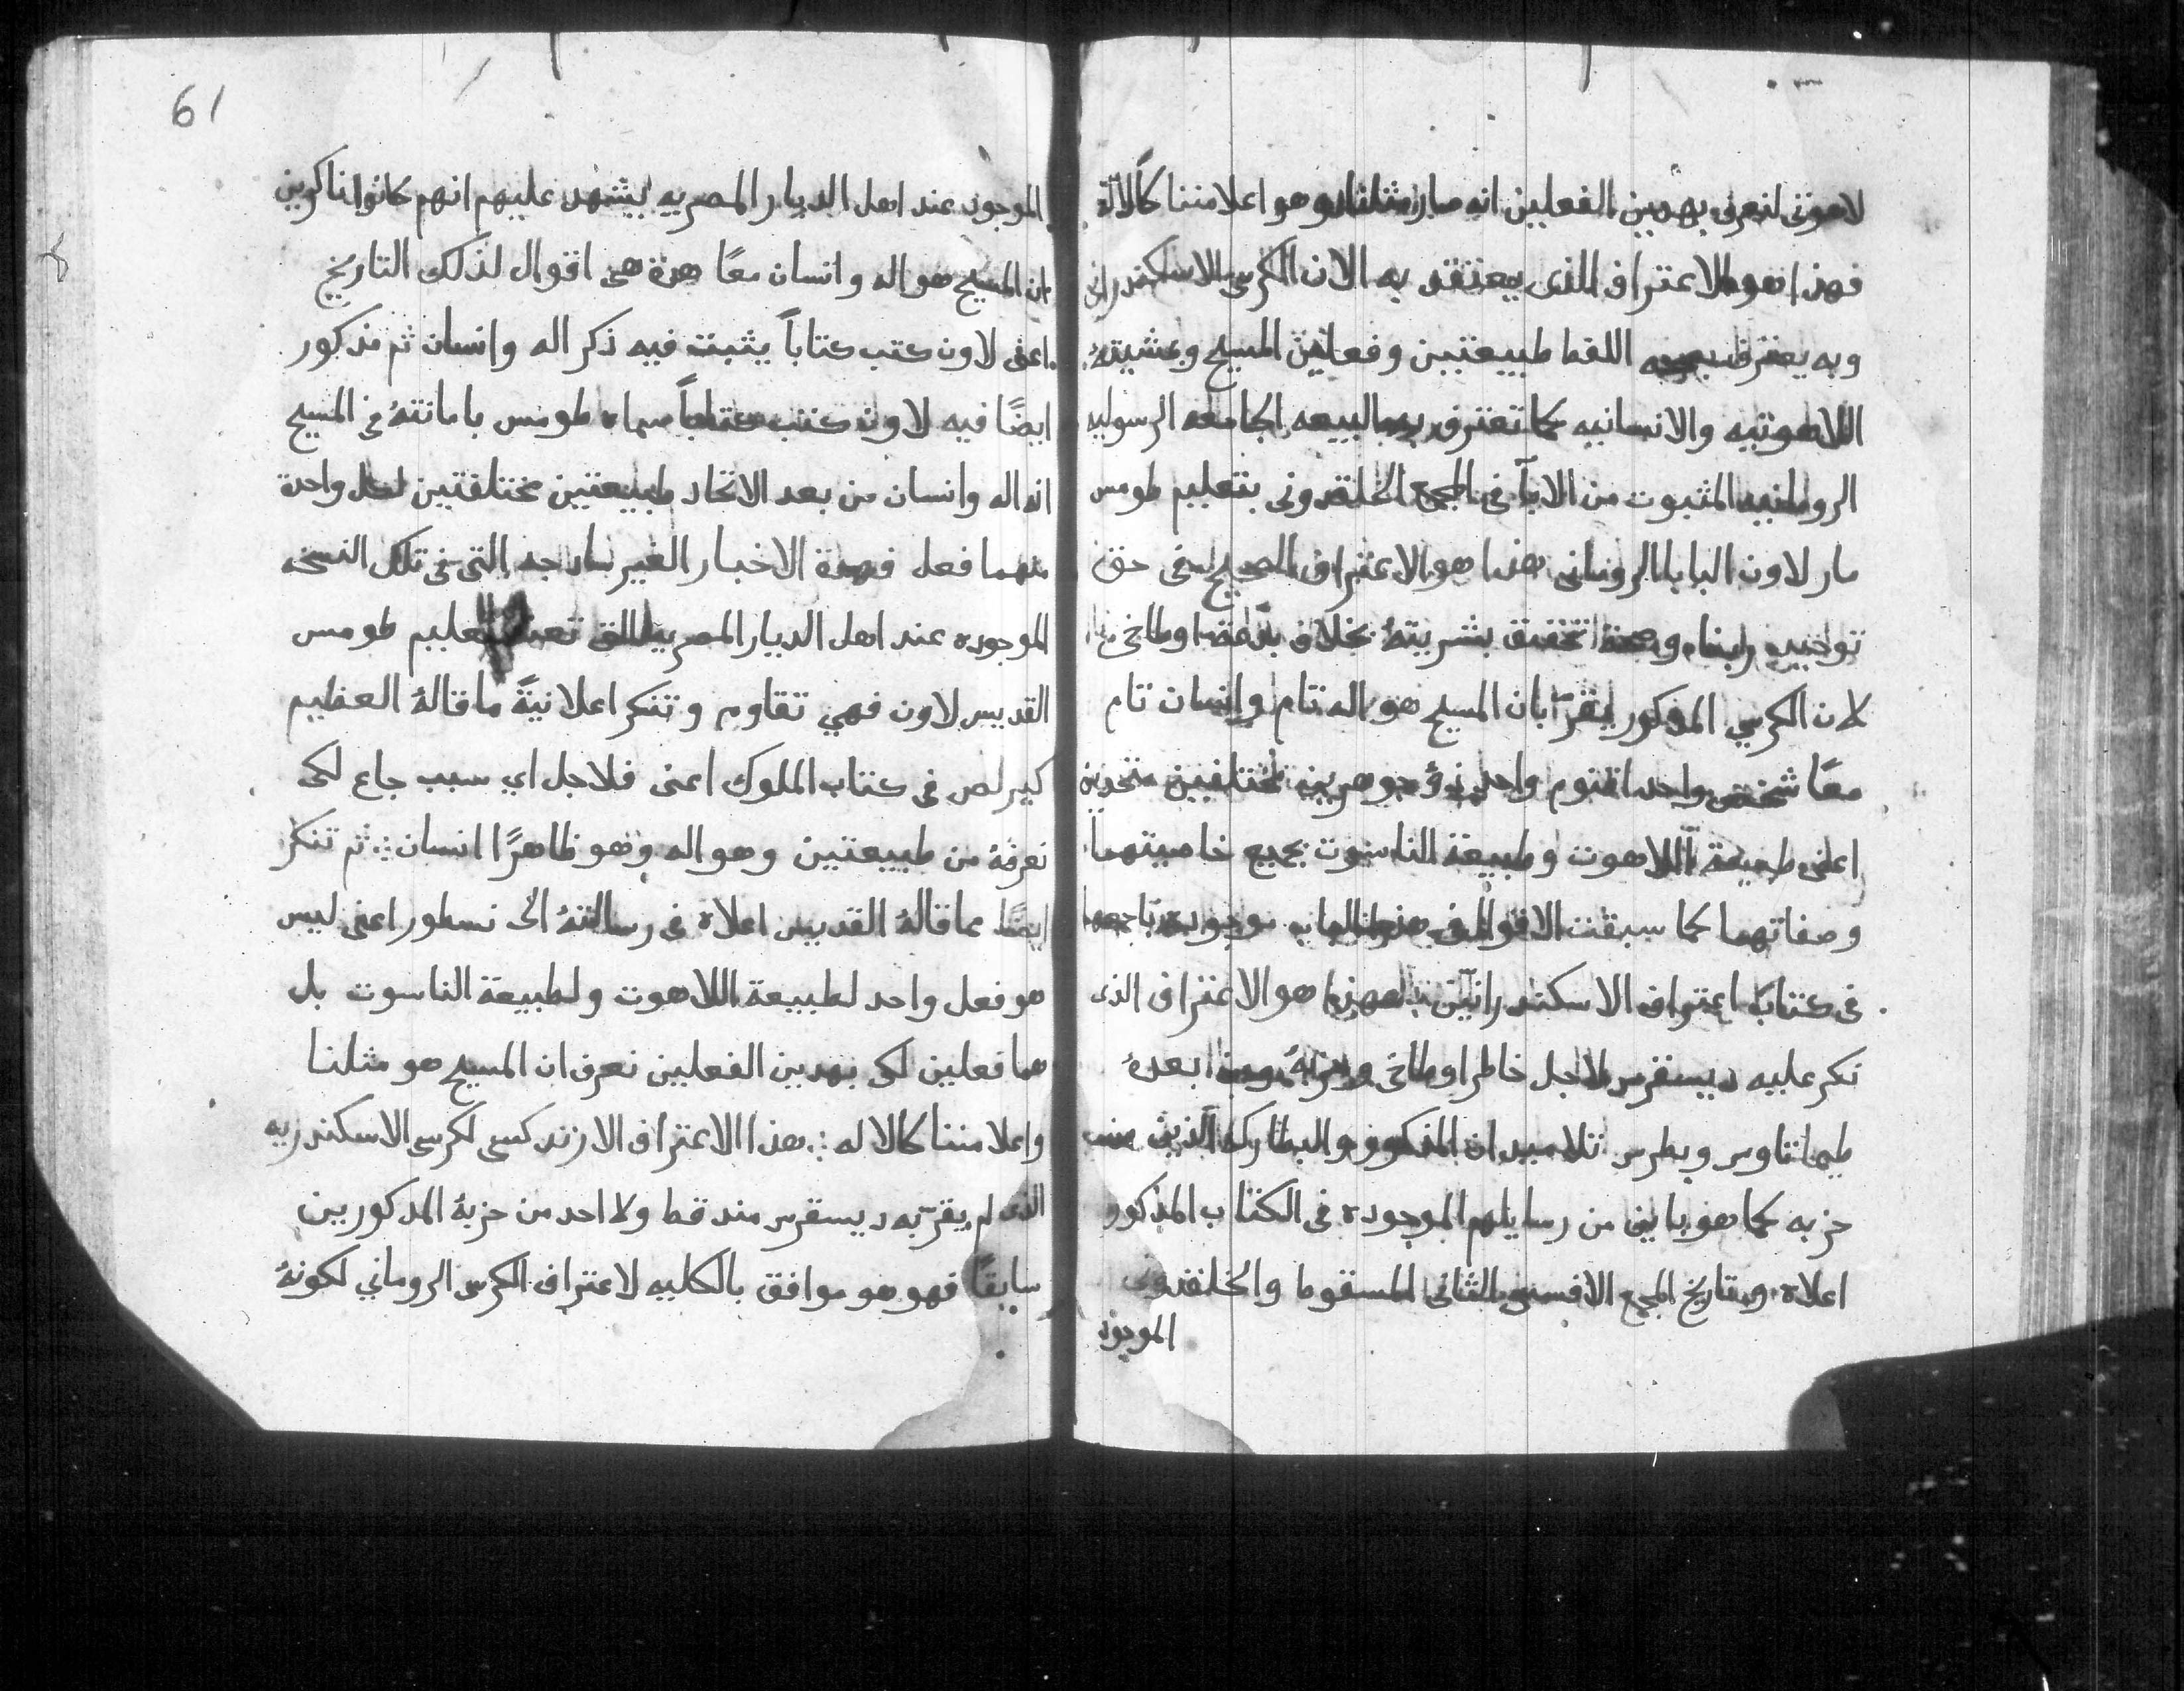 لاهوتى لنعرف بهدين الفعلين انه صار مثلنا وهو اعلا مننا كالالة
فهذا هو الاعتراف الذى يعتقد به الان الكرسى الاسكندرانى
وبه يعترف اللفظ طبيعتين وفعلين المسيح وبمشيتهُ
اللاهوتيه والانسانيه كما تعترف به البيعه الجامعه الرسوليه
الرومانيه المثبوت من الابآ فى المجمع الخلقدونى بتعليم طومس
مار لاون البابا الرومانى هذا هو الاعتراف الصحيح فى حق
توحيد ربنا وصحة تحقيق بشريتهُ بخلاف اوطاخى
لان الكرسي المذكور يقرّ بان المسيح هو اله تام وانسان تام
معًا شخص واحد اقنوم واحد ذو جوهرين مختلفين متحدين
اعنى طبيعة اللاهوت وطبيعة الناسوت بجميع خاصيتهما
وصفاتهما كما سبقت الاقوال فى هذا الباب موجوده
فى كتاب اعتراف الاسكندرانيّن فهذا هو الاعتراف الذى
نكر عليه ديسقرس لاجل خاطر اوطاخى وحزبهُ ومن بعدهُ
طيماتاوس وبطرس تلاميدان المذكور والبطاركه الذين من
حزبه كما هو باين من رسايلهم الموجوده فى الكتاب المذكور
اعلاه وبتاريخ المجمع الافسسى الثانى المسقوط والخلقدونى
الموجود
61
الموجود عند اهل الديار المصريه يشهد عليهم انهم كانوا ناكرين
ان المسيح هو اله وانسان معًا هدة هى اقوال لذلك التاريخ
اعنى لاون كتب كتاباً يثبت فيه ذكر اله وانسان ثم مذكور
ايضًا فيه لاون كتب كتاباً سماه طومس بامانتهُ فى المسيح
انه اله وانسان من بعد الاتحاد طبيعتين مختلفتين لكل واحدة
منهما فعل فهدة الاخبار الغير سادجه التى فى تلك النسخه
الموجوده عند اهل الديار المصريه تعليم طومس
القديس لاون فهي تقاوم وتنكر اعلانيةً ما قالهُ العظيم
كيرلص فى كتاب الملوك اعنى فلاجل اي سبب جاع لكى
نعرفهُ من طبيعتين وهو اله وهو ظاهرًا انسان ثم تنكر
ايضًا ما قالهُ القديس اعلاه فى رسالتهُ الى نسطور اعنى ليس
هو فعل واحد لطبيعة اللاهوت ولطبيعة الناسوت بل
هما فعلين لكى بهدين الفعلين نعرف ان المسيح هو مثلنا
واعلا مننا كالاله هذا الاعتراف الارتدكسى لكرسى الاسكندريه
الذى لم يقرّ به ديسقرس مند قط ولا احد من حزبهُ المدكورين
سابقًا فهو هو موافق بالكليه لاعتراف الكرسى الروماني لكونهُ